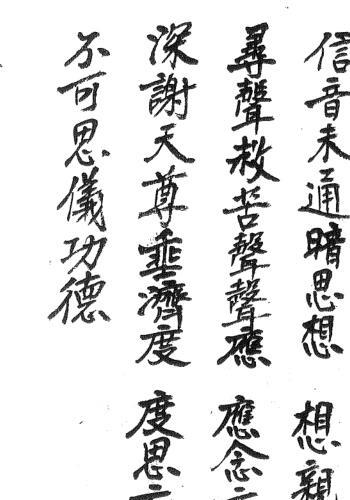 信音未通暗思想 想親
尋聲救苦聲聲應 應念二
深謝天尊垂濟度 度思二
不可思儀功德